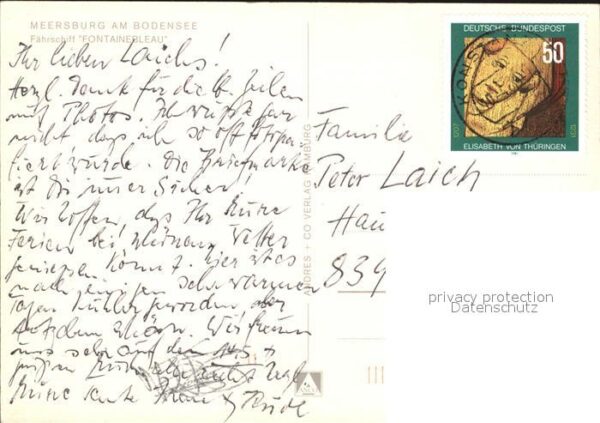 MEERSBURG AM BODENSEE
Fährschiff "FONTAINEBLEAU"
Ihr lieben Laichs!
Herzl. Dank für die lb. Zeilen
mit Photos. Ich wußte gar
nicht dass ich so oft fotogra-
fiert wurde. Die Briefmarke
ist
Wir hoffen, dass Ihr Eure
Ferien bei schönem Wetter
geniessen könnt. Hier ist es
nach einigen sehr warmen
Tagen kühler geworden aber
trotzdem schön. Wir freuen
uns sehr auf
Eure
ANDRES + CO VERLAG HAMBURG
DEUTSCHE BUNDESPOST
50
1207
1231
ELISABETH VON THÜRINGEN
KONSTANZ
Familie
Peter Laich
Hau
839
privacy protection
Datenschutz